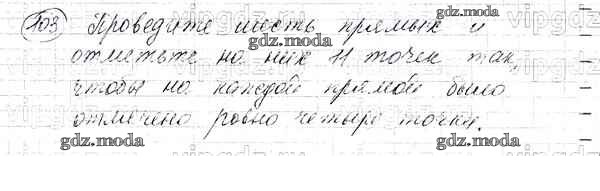 103 Проведите шесть прямых и
отметьте на них 11 точек так,
чтобы на каждой прямой было
отмечено ровно четыре точки.
gdz.moda
gdz.moda
gdz.moda
gdz.moda
gdz.moda
gdz.moda